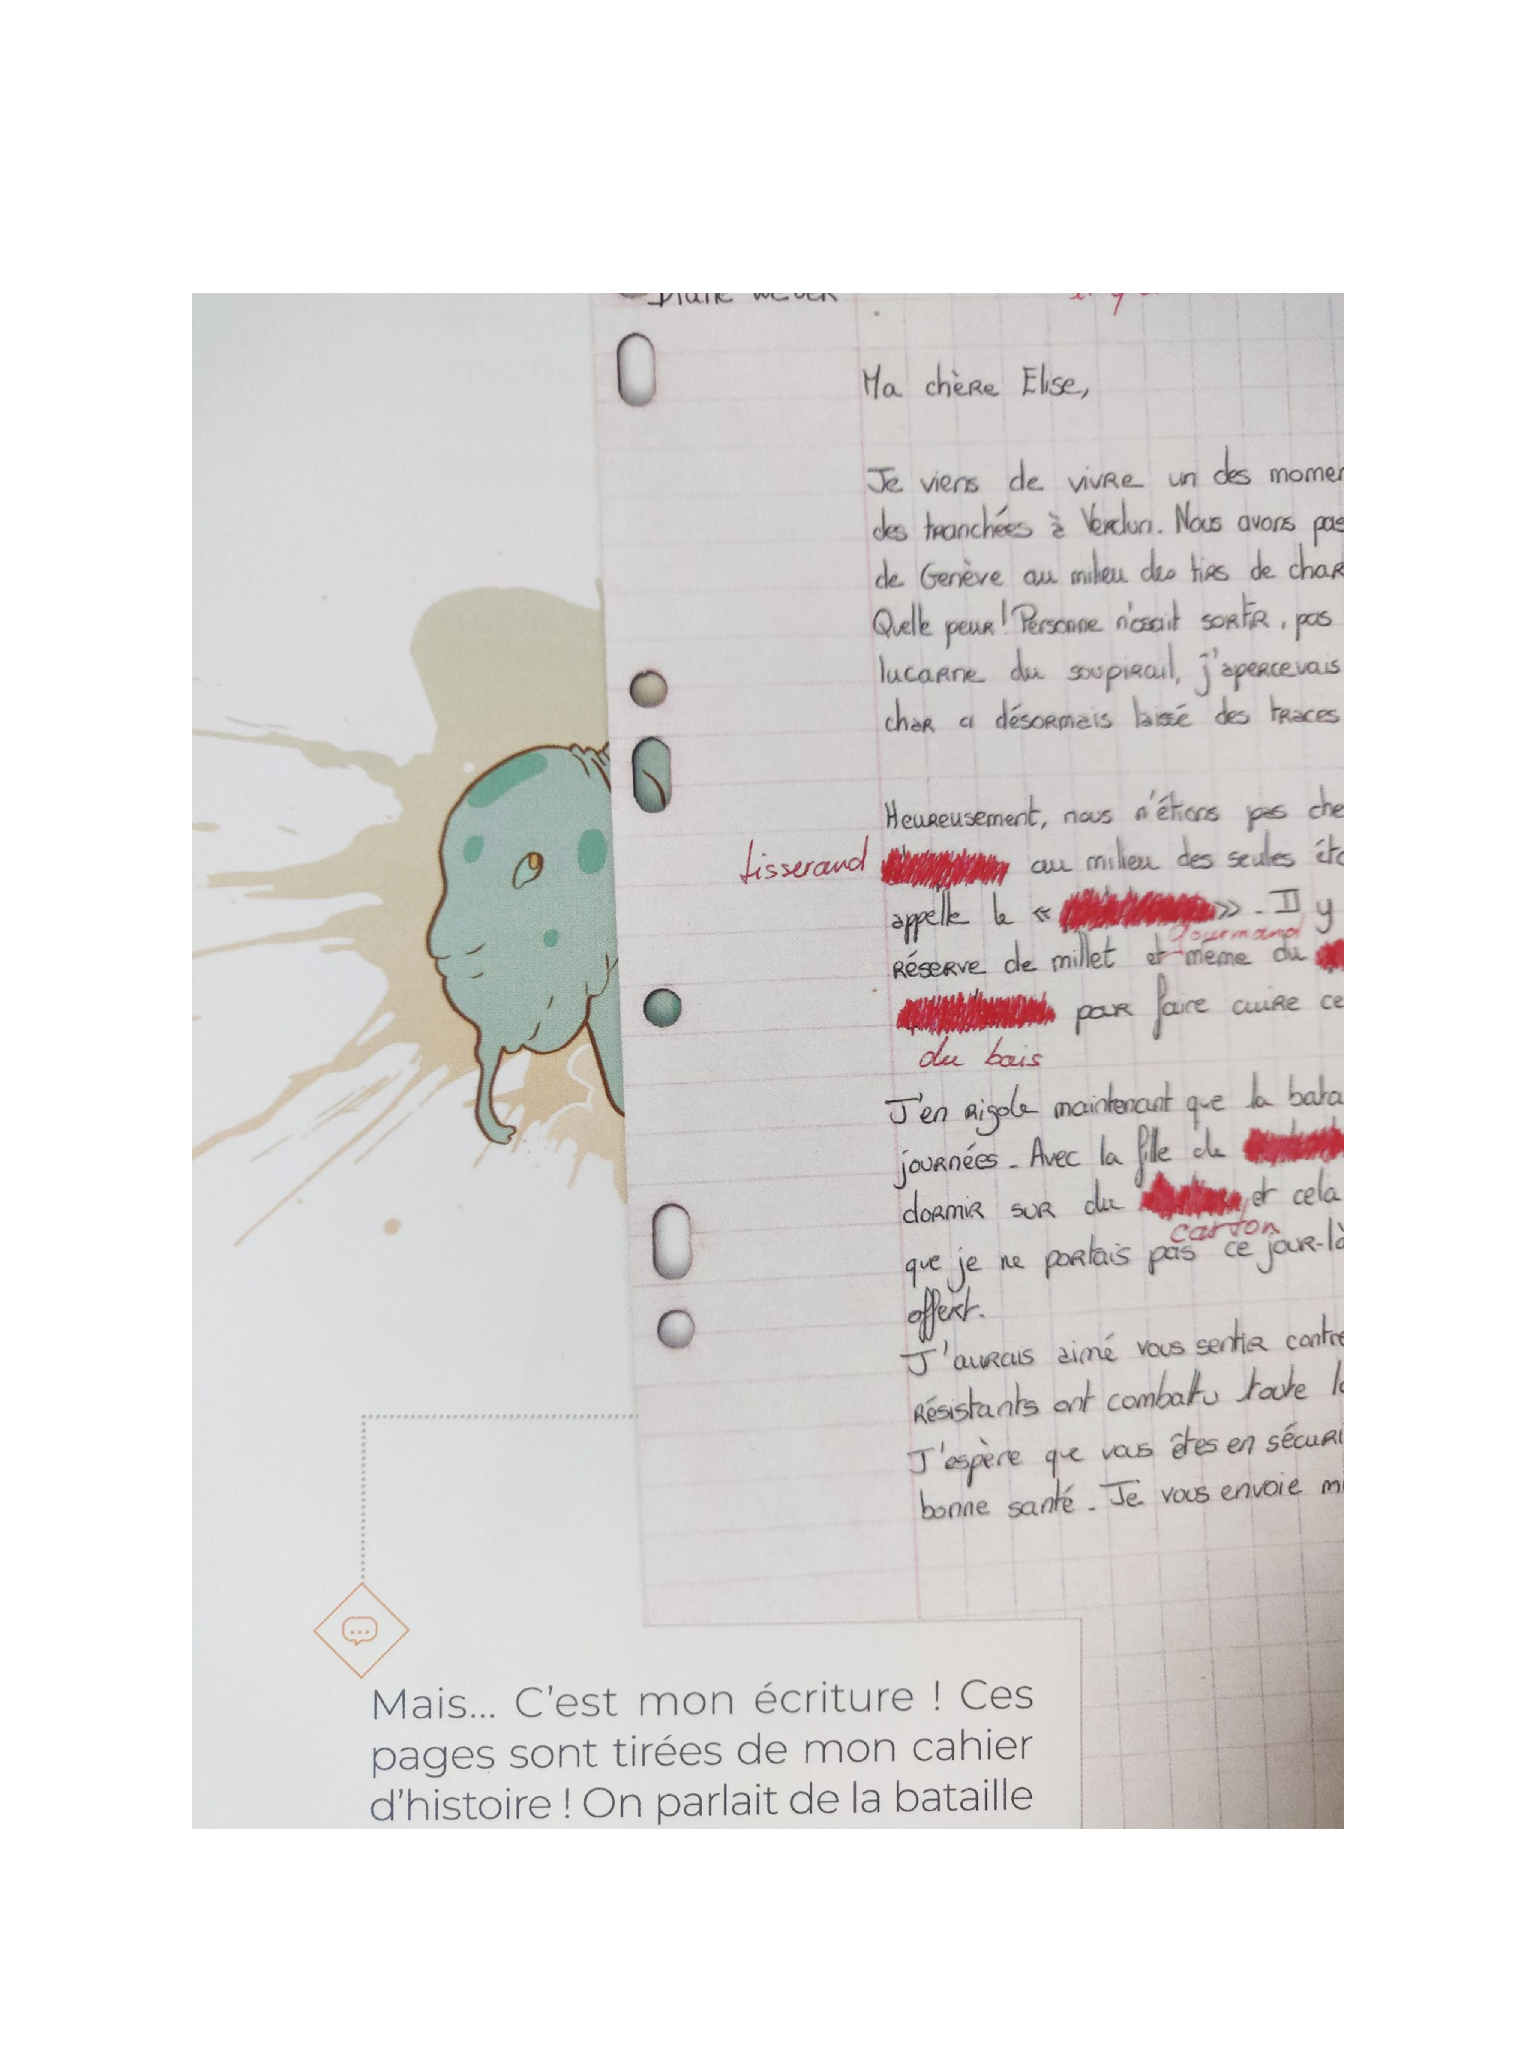 Ma chère Elise,
Je viens de vivre un des
des tranchées à Verdun. Nous avons
de Genève au milieu des tirs de
Quelle peur! Personne n'osait sortir, pas
lucarne du soupirail, j'apercevais
char a désormais laissé des traces
Heureusement, nous n'étions pas
tisserand au milieu des seules
appelle le « ». Il y
gourmand
réserve de millet et même du
pour faire cuire ce
du bois
J'en rigole maintenant que la
journées. Avec la fille de
dormir sur du et cela
carton
que je ne portais pas ce jour-là
offert.
J'aurais aimé vous sentir
résistants ont combattu toute
J'espère que vous êtes en
bonne santé. Je vous envoie
Mais... C'est mon écriture ! Ces
pages sont tirées de mon cahier
d'histoire ! On parlait de la bataille